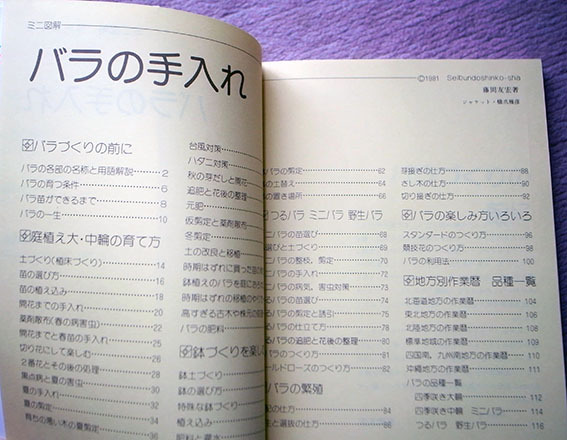 ミニ図解
バラの手入れ
©1981 Seibundoshinko-sha
藤岡友宏著
バラづくりの前に
バラの各部の名称と用語解説 2
バラの育つ条件 6
バラ苗ができるまで 8
バラの一生 10
庭植え大・中輪の育て方
土づくり(植床づくり) 14
苗の選び方 16
苗の植え込み 18
開花までの手入れ 20
薬剤散布(春の病害虫) 22
開花までと春苗の手入れ 25
切り花にして楽しむ 26
2番花とその後の処理 28
黒点病と夏の害虫 30
夏の手入れ 32
夏の剪定 34
育ちの悪い木の夏剪定 36
台風対策
ハダニ対策
秋の芽だしと開花
追肥と花後の整理
元肥
仮剪定と薬剤散布
冬剪定
土の改良と移植
時期はずれに買った苗の
鉢植えのバラを庭に
時期はずれの移植の
高すぎる古木や株元の
バラの肥料
鉢づくりを楽し
鉢土づくり
鉢の選び方
特殊な鉢づくり
植え込み
肥料と灌水
バラの剪定 62
の土替え 64
の置き場所 66
つるバラ ミニバラ 野生バラ
バラの苗選び 68
選びと土づくり 69
ニバラの整枝、剪定 70
ニバラの手入れ 72
ニバラの病気、害虫対策 73
るバラの苗選び 74
るバラの剪定と誘引 75
るバラの仕立て方 78
るバラの追肥と花後の整理 80
バラのつくり方 81
ールドローズのつくり方 82
バラの繁殖
の仕方 84
と選抜の仕方 86
芽接ぎの仕方 88
さし木の仕方 90
切り接ぎの仕方 92
バラの楽しみ方いろいろ
スタンダードのつくり方 96
競技花のつくり方 98
バラの利用法 100
地方別作業暦 品種一覧
北海道地方の作業暦 104
東北地方の作業暦 106
北陸地方の作業暦 108
標準地域の作業暦 109
四国南、九州南地方の作業暦 110
沖縄地方の作業暦 111
バラの品種一覧
四季咲き大輪 112
四季咲き中輪 ミニバラ 114
つるバラ 野生バラ 116